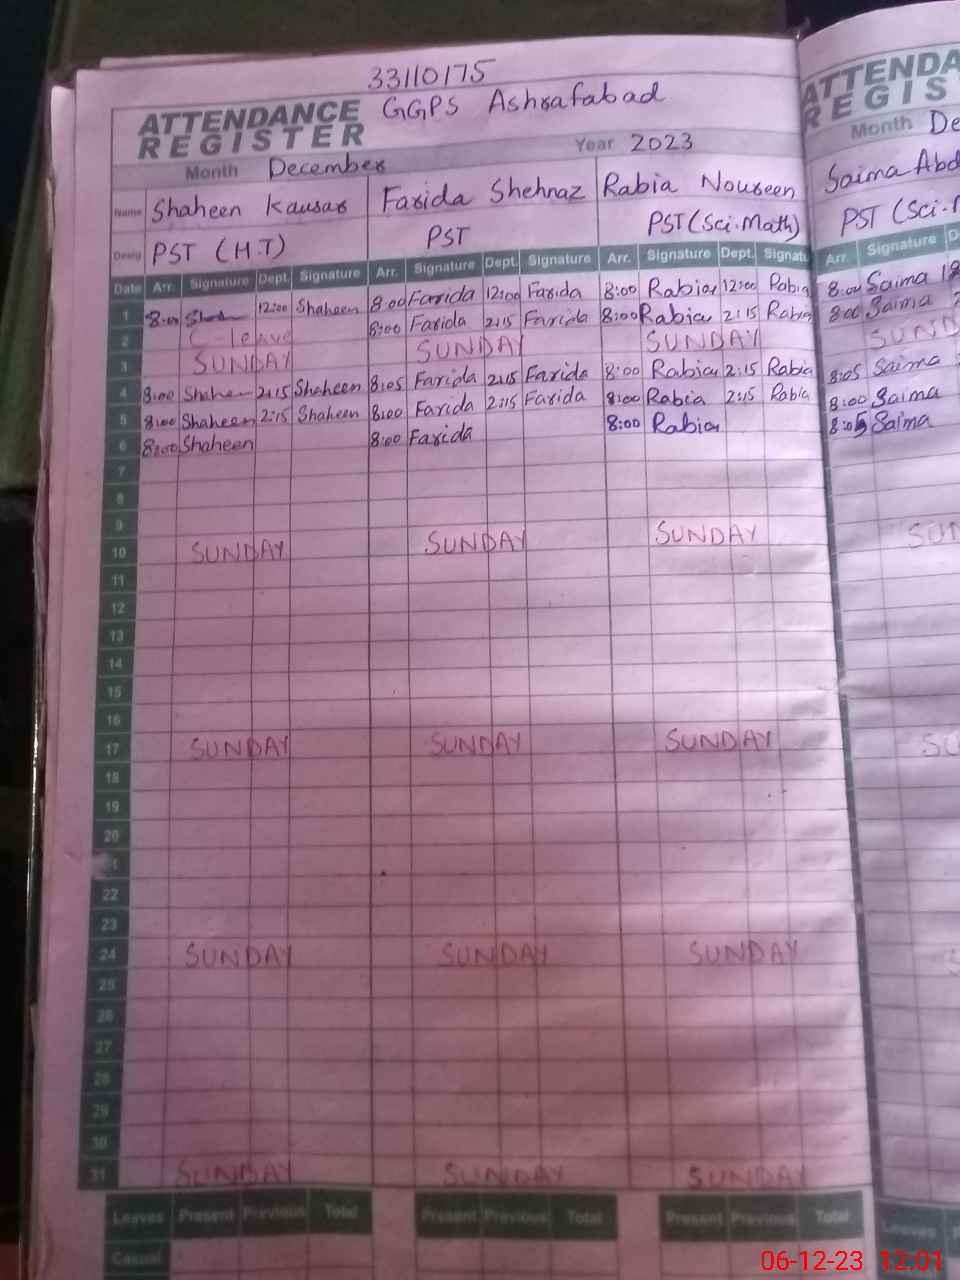 33110175
ATTENDANCE GGPS Ashrafabad
REGISTER
Month December Year 2023
Name Shaheen Kausar Farida Shehnaz Rabia Noureen
Desig PST (H.T) PST PST (Sci.Math)
Date Arr. Signature Dept. Signature Arr. Signature Dept. Signature Arr. Signature Dept. Signatu
1 8:00 12:00 Shaheen 8:00 Farida 12:00 Farida 8:00 Rabia 12:00 Rabia
2 C-leave 8:00 Farida 2:15 Farida 8:00 Rabia 2:15 Rabia
3 SUNDAY SUNDAY SUNDAY
4 8:00 Shaheen 2:15 Shaheen 8:05 Farida 2:15 Farida 8:00 Rabia 2:15 Rabia
5 8:00 Shaheen 2:15 Shaheen 8:00 Farida 2:15 Farida 8:00 Rabia 2:15 Rabia
6 8:00 Shaheen 8:00 Farida 8:00 Rabia
7
8
9
10 SUNDAY SUNDAY SUNDAY
11
12
13
14
15
16
17 SUNDAY SUNDAY SUNDAY
18
19
20
21
22
23
24 SUNDAY SUNDAY SUNDAY
25
26
27
28
29
30
31 SUNDAY SUNDAY SUNDAY
Leaves Present Previous Total Present Previous Total Present Previous Total
Casual
ATTENDA
REGIS
Month De
Saima Abd
PST (Sci.M
Arr. Signature D
8:00 Saima
8:00 Saima
SUND
8:05 Saima
8:00 Saima
8:05 Saima
SUN
SU
S
Leaves P
06-12-23 12:01